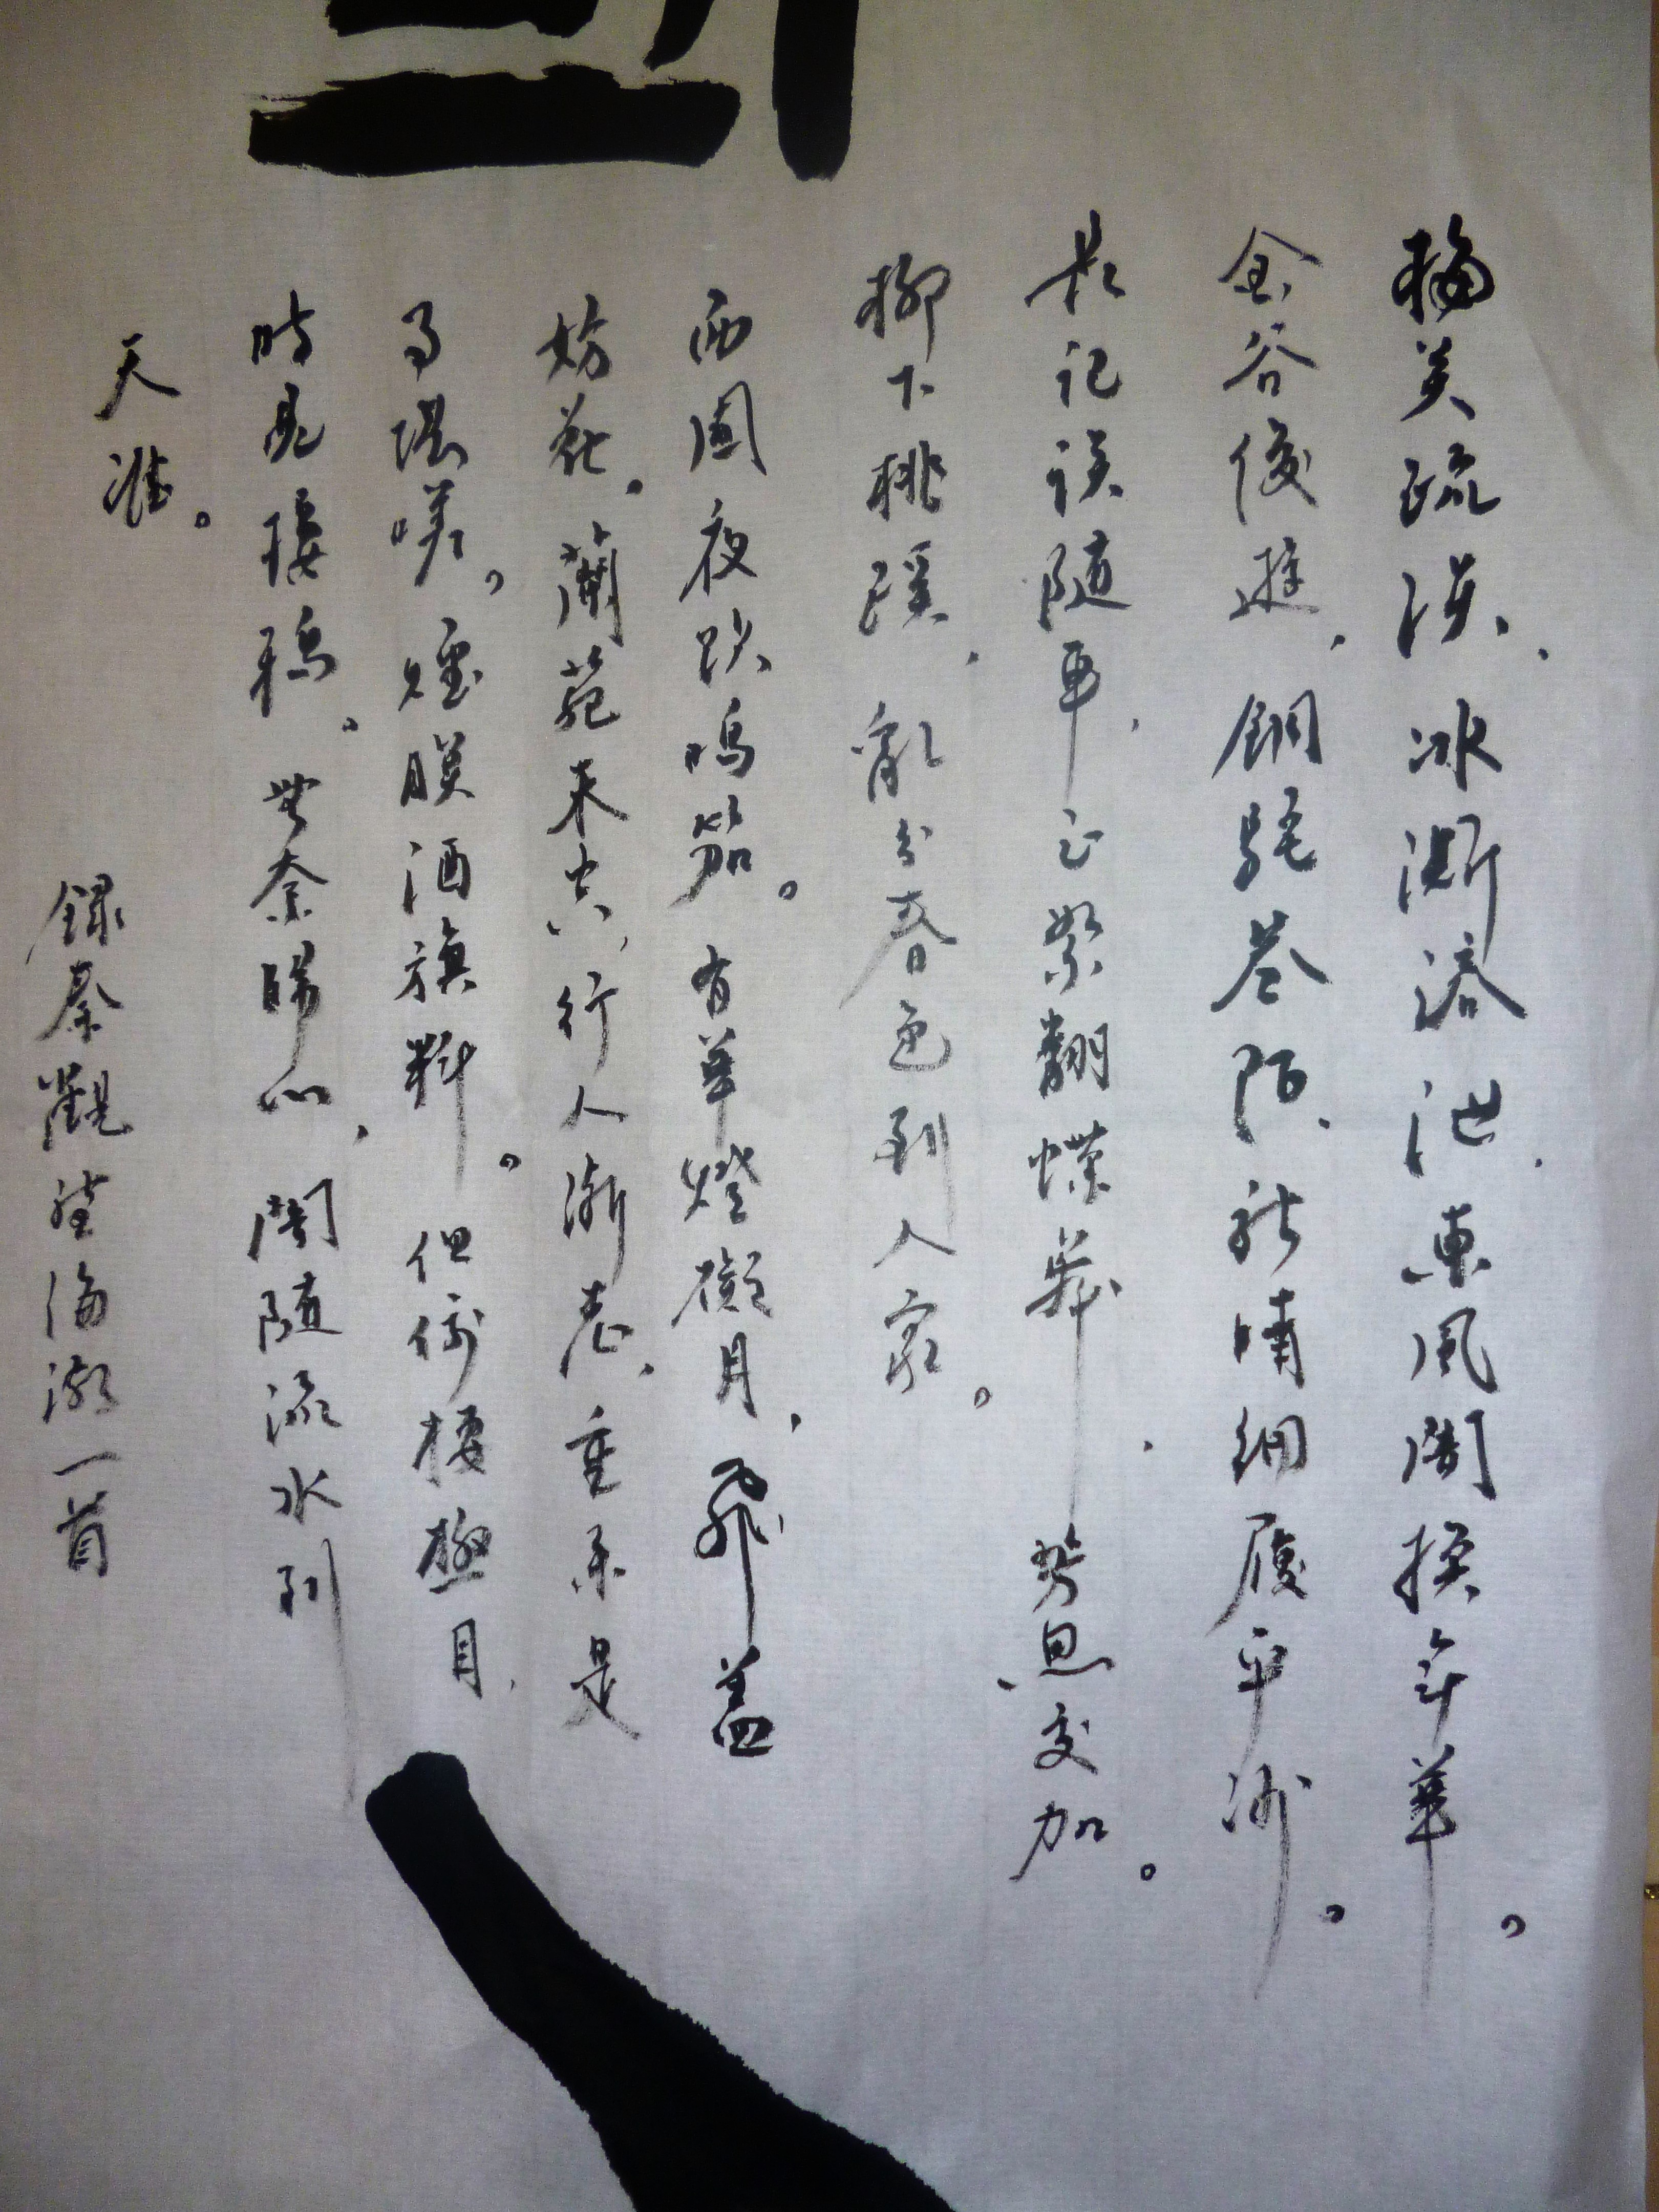 梅英疏淡、冰澌溶泄、東風闇換年華。
金谷俊遊、銅駝巷陌、新晴細履平沙。
長記誤隨車、正絮翻蝶舞、芳思交加。
柳下桃蹊、亂分春色到人家。
西園夜飲鳴笳。有華燈礙月、飛蓋
妨花。蘭苑未空、行人漸老、重來是
事堪嗟。煙暝酒旗斜。但倚樓極目、
時見棲鴉。無奈歸心、闇隨流水到
天涯。
錄秦觀望海潮一首